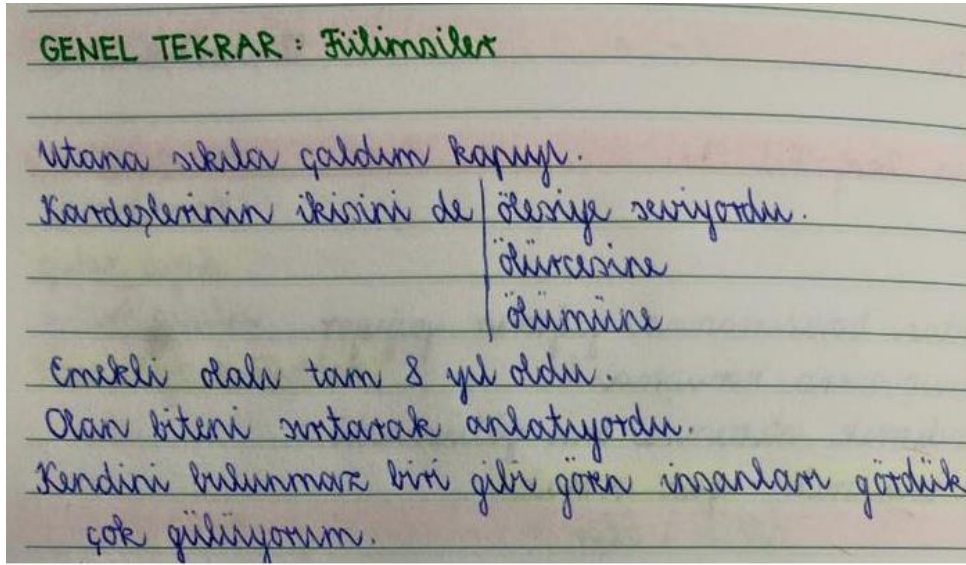 GENEL TEKRAR : Fiilimsiler
Utana sıkıla çaldım kapıyı.
Kardeşlerinin ikisini de | ölesiye seviyordu.
ölürcesine
ölümüne
Emekli olalı tam 8 yıl oldu.
Olan biteni sırtarak anlatıyordu.
Kendini bulunmaz biri gibi görn insanları gördük
çok gülüyorum.